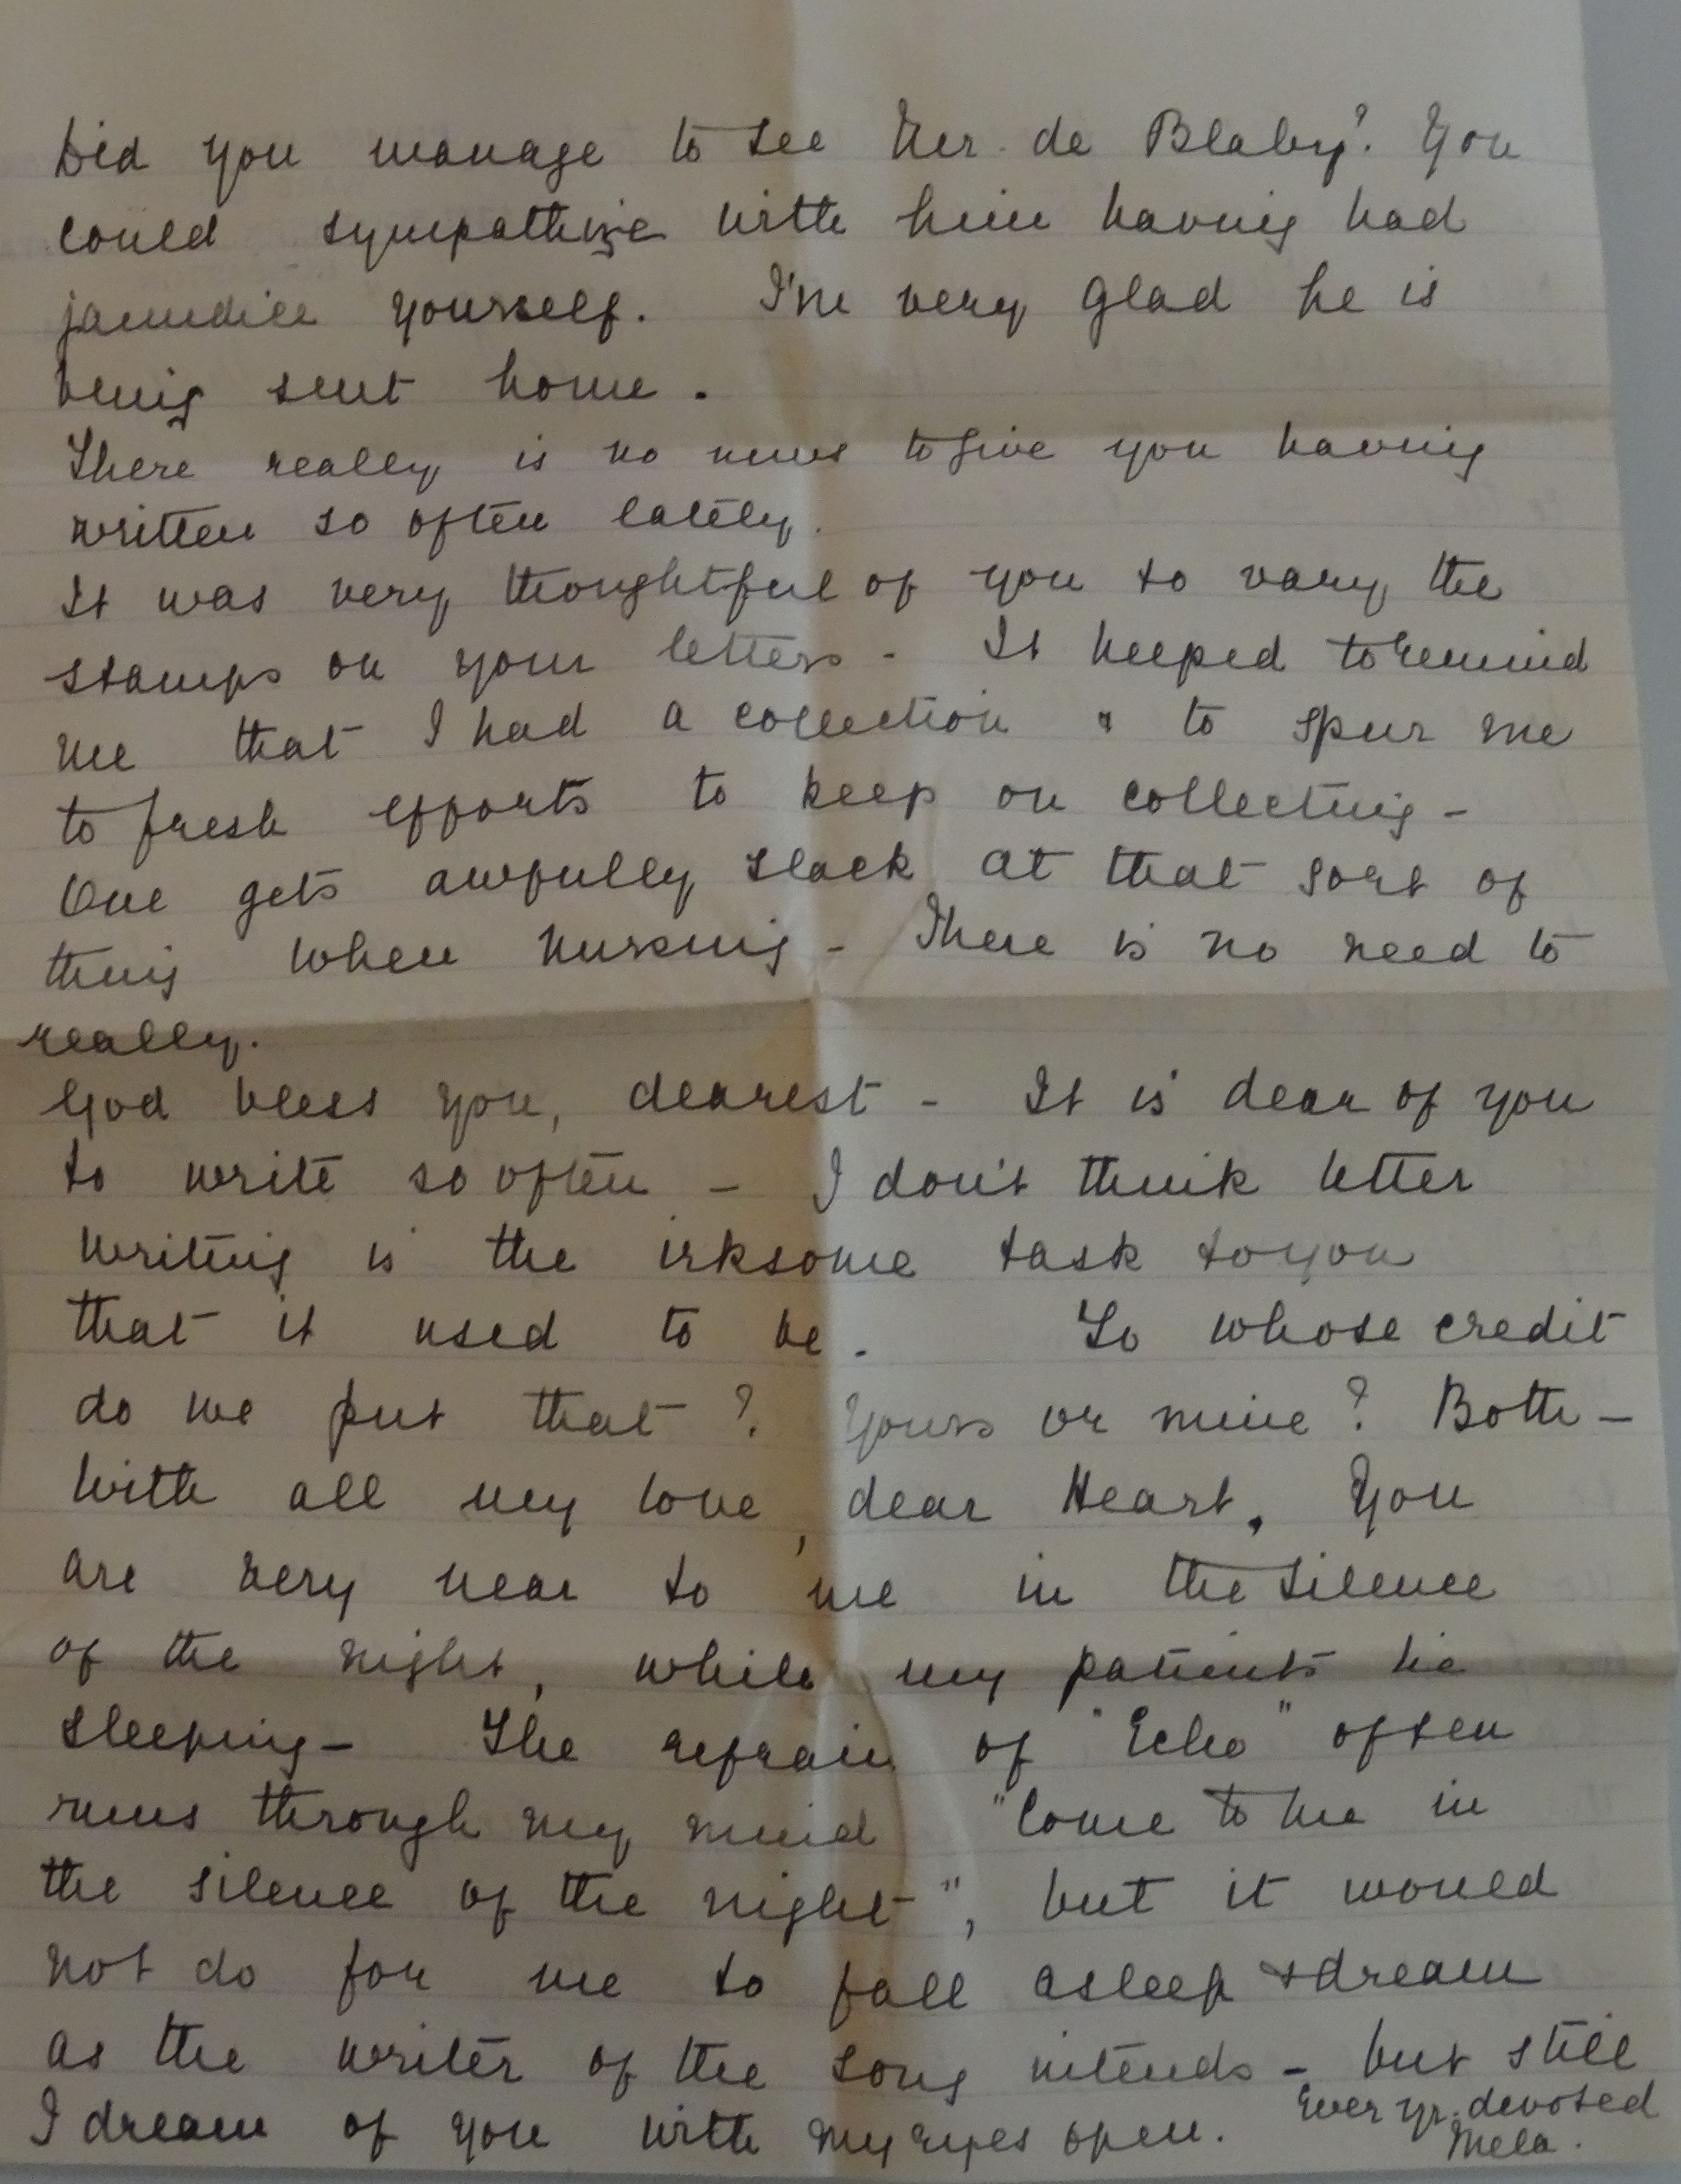 Did you manage to see Mr. de Blaby? You
could sympathize with him having had
jaundice yourself. I'm very glad he is
being sent home.
There really is no news to give you having
written so often lately.
It was very thoughtful of you to vary the
stamps on your letters - It helped to remind
me that I had a collection & to spur me
to fresh efforts to keep on collecting -
One gets awfully slack at that sort of
thing when nursing - There is no need to
really.
God bless you, dearest - It is dear of you
to write so often - I don't think letter
writing is the irksome task to you
that it used to be. To whose credit
do we put that? Yours or mine? Both -
With all my love, dear Heart, You
are very near to me in the silence
of the night, while my patients lie
sleeping - The refrain of "Echo" often
runs through my mind "Come to me in
the silence of the night", but it would
not do for me to fall asleep & dream
as the writer of the song intends - but still
I dream of you with my eyes open. Ever yr. devoted
Mela.